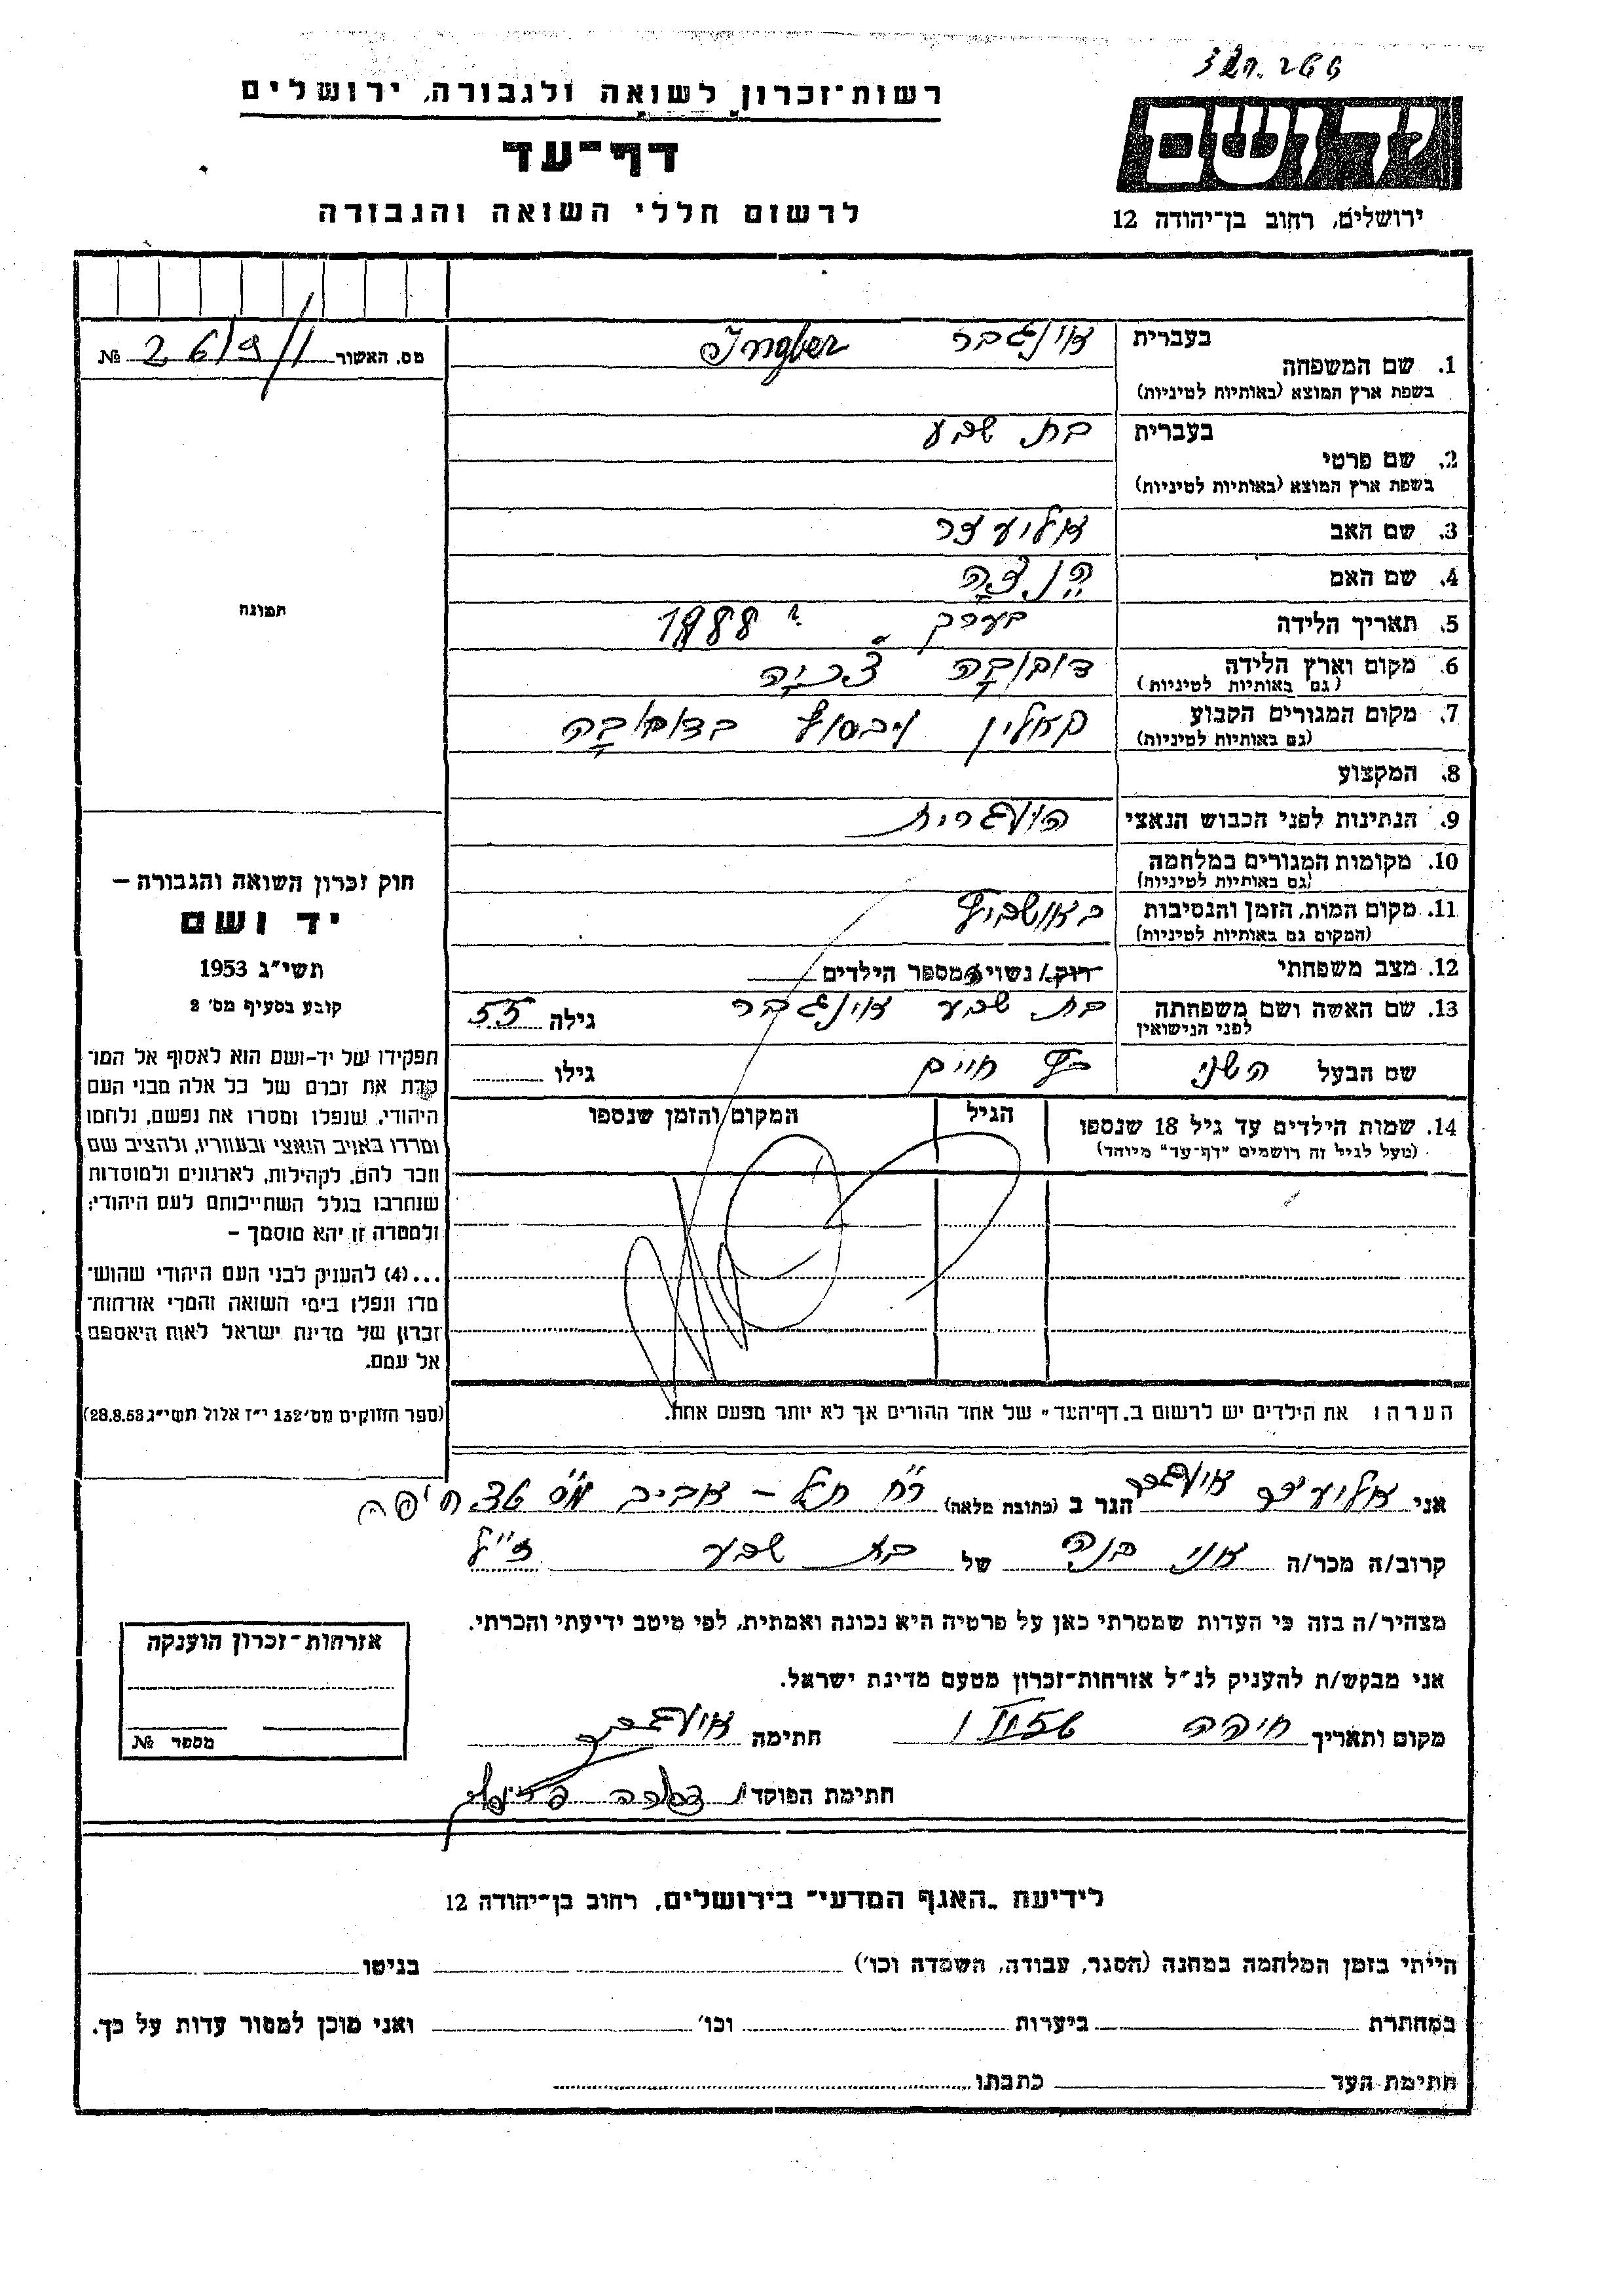 רשות־זכרון לשואה ולגבורה, ירושלים
דף־עד
לרשום חללי השואה והגבורה
יד ושם
ירושלים, רחוב בן־יהודה 12
מס. האשור № 26/9/1
בעברית אינגבר Ingber
1. שם המשפחה
בשפת ארץ המוצא (באותיות לטיניות)
בעברית בת שבע
2. שם פרטי
בשפת ארץ המוצא (באותיות לטיניות)
3. שם האב אליעזר
4. שם האם
5. תאריך הלידה בערך 1888
6. מקום וארץ הלידה
(גם באותיות לטיניות)
7. מקום המגורים הקבוע
(גם באותיות לטיניות)
8. המקצוע
9. הנתינות לפני הכבוש הנאצי
10. מקומות המגורים במלחמה
(גם באותיות לטיניות)
11. מקום המות, הזמן והנסיבות באושביץ
(המקום גם באותיות לטיניות)
12. מצב משפחתי רוק/ נשוי/ מספר הילדים
13. שם האשה ושם משפחתה בת שבע אינגבר גילה 55
לפני הנישואין
שם הבעל השני חיים גילו
14. שמות הילדים עד גיל 18 שנספו הגיל המקום והזמן שנספו
(מעל לגיל זה רושמים "דף־עד" מיוחד)
הערה: את הילדים יש לרשום ב„דף־העד" של אחד ההורים אך לא יותר מפעם אחת.
תמונה
חוק זכרון השואה והגבורה –
יד ושם
תשי"ג 1953
קובע בסעיף מס' 2
תפקידו של יד-ושם הוא לאסוף אל המו־
לדת את זכרם של כל אלה מבני העם
היהודי, שנפלו ומסרו את נפשם, נלחמו
ומרדו באויב הנאצי ובעוזריו, ולהציב שם
וזכר להם, לקהילות, לארגונים ולמוסדות
שנחרבו בגלל השתייכותם לעם היהודי;
ולמטרה זו יהא מוסמך –
...(4) להעניק לבני העם היהודי שהוש־
מדו ונפלו בימי השואה והמרי אזרחות־
זכרון של מדינת ישראל לאות היאספם
אל עמם.
(ספר החוקים מס' 132 י"ז אלול תשי"ג 28.8.53)
אני אליעזר אינגבר הגר ב (כתובת מלאה) רח תל – אביב חיפה
קרוב/ה מכר/ה אני בנה של בת שבע ז"ל
מצהיר/ה בזה כי העדות שמסרתי כאן על פרטיה היא נכונה ואמתית, לפי מיטב ידיעתי והכרתי.
אני מבקש/ת להעניק לנ"ל אזרחות-זכרון מטעם מדינת ישראל.
מקום ותאריך חיפה חתימה אינגבר
חתימת הפוקד
אזרחות־זכרון הוענקה
מספר №
לידיעת „האגף המדעי" בירושלים, רחוב בן־יהודה 12
הייתי בזמן המלחמה במחנה (הסגר, עבודה, השמדה וכו') בגיטו
במחתרת ביערות וכו' ואני מוכן למסור עדות על כך.
חתימת העד כתבתו